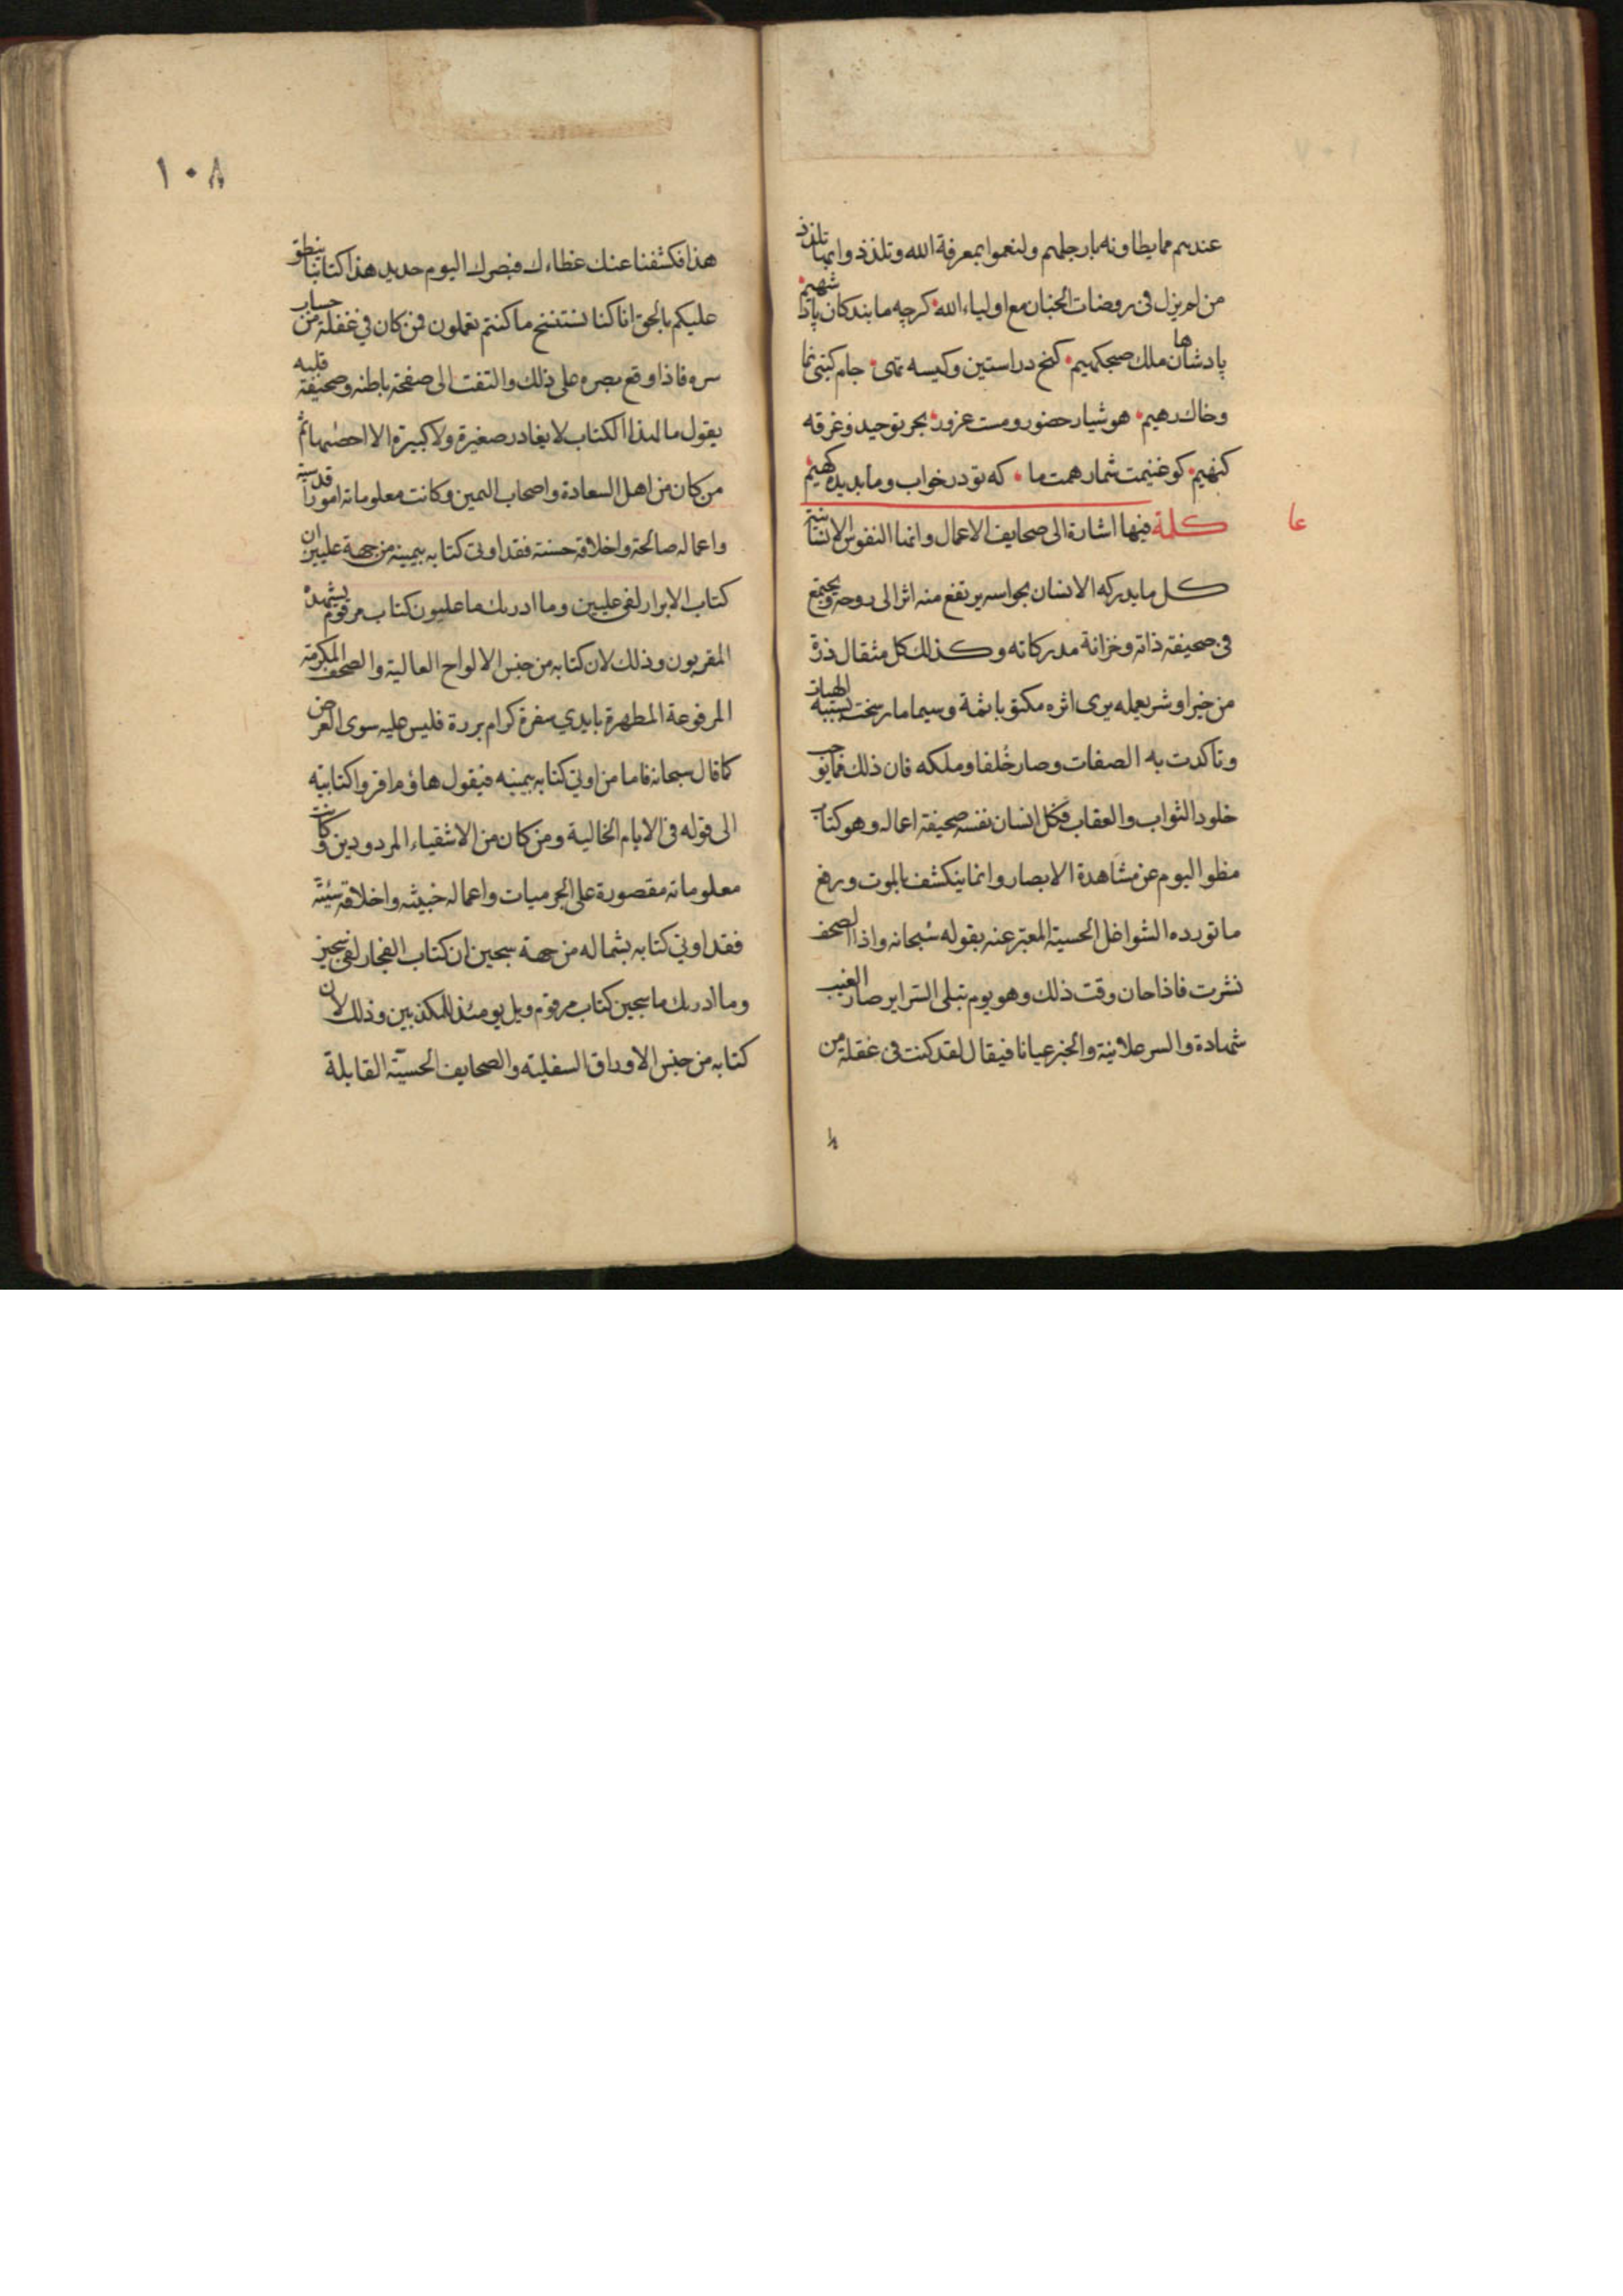 عندهم مما يطاونه بارجلهم ولنعموا بمعرفة الله وتلذذوا بها تلذذ
من لم يزل فى روضات الجنان مع اولياء الله كرچه ما بندكان پادشهيم
پادشاهان ملك صبحكهيم كنج در استين وكيسه تهى جام كيتى نما
وخاك رهيم هوشيار حضور ومست غرور بحر توحيد وغرقه
كنهيم كو غنيمت شمار همت ما كه تو در خواب وما بديده كهيم
عا
كلمة فيها اشارة الى صحايف الاعمال وانها النفوس الانسانية
كل ما يدركه الانسان بحواسه يرتفع منه اثر الى روحه ويجتمع
فى صحيفة ذاته وخزانة مدركاته وكذلك كل مثقال ذرة
من خير او شر يعمله يرى اثره مكتوبا ثمة وسيما ما رسخت بسببه الهيات
وتاكدت به الصفات وصار خلقا وملكه فان ذلك مما يوجب
خلود الثواب والعقاب فكل انسان نفسه صحيفة اعماله وهو كتاب
مطو اليوم عن مشاهدة الابصار وانما ينكشف بالموت ورفع
ما تورده الشواغل الحسية المعبر عنه بقوله سبحانه واذا الصحف
نشرت فاذا حان وقت ذلك وهو يوم تبلى السراير صار الغيب
شهادة والسر علانية والخبر عيانا فيقال لقد كنت فى غفلة من
١٠٨
هذا فكشفنا عنك غطاءك فبصرك اليوم حديد هذا كتابنا ينطق
عليكم بالحق انا كنا نستنسخ ما كنتم تعملون فمن كان في غفلة من حساب
سره فاذا وقع بصره على ذلك والتفت الى صفحة باطنه وصحيفة قلبه
يقول ما لهذا الكتاب لا يغادر صغيرة ولا كبيرة الا احصيها ثم
من كان من اهل السعادة واصحاب اليمين وكانت معلوماته امورا قدسية
واعماله صالحة واخلاقه حسنة فقد اوتى كتابه بيمينه من جهة عليين ان
كتاب الابرار لفى عليين وما ادريك ما عليون كتاب مرقوم يشهده
المقربون وذلك لان كتابه من جنس الالواح العالية والصحف المكرمة
المرفوعة المطهرة بايدي سفرة كرام بررة فليس عليه سوى العرض
كما قال سبحانه فاما من اوتي كتابه بيمينه فيقول هاؤم اقرؤا كتابيه
الى قوله فى الايام الخالية ومن كان من الاشقياء المردودين وكانت
معلوماته مقصورة على الجرميات واعماله خبيثه واخلاقه سيئة
فقد اوتي كتابه بشماله من جهة سجين ان كتاب الفجار لفى سجين
وما ادريك ما سجين كتاب مرقوم ويل يومئذ للمكذبين وذلك لان
كتابه من جنس الاوراق السفلية والصحايف الحسية القابلة